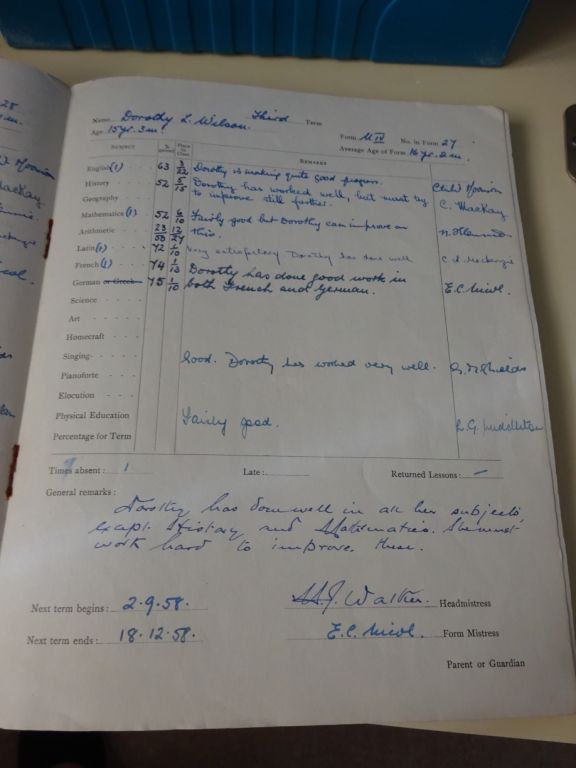 28
Name Dorothy L. Wilson. Third Term
Age 15 yr. 3 m. Form U IV No. in Form 27
Average Age of Form 16 yr. 2 m.
SUBJECT % Place in Class REMARKS
English (1) 63 3/22 Dorothy is making quite good progress.
History 52 5/15 Dorothy has worked well, but must try C. MacKay
Geography to improve still further.
Mathematics (1) 52 6/10 Fairly good but Dorothy can improve on
Arithmetic 23/50 12/27 this.
Latin (1) 72 1/10 Very satisfactory. Dorothy has done well C. A. Mackenzie
French (1) 74 Dorothy has done good work in
German or Greek 75 1/10 both French and German. E.C. Nicol.
Science
Art
Homecraft
Singing Good. Dorothy has worked very well. Shields
Pianoforte
Elocution
Physical Education Fairly good. L.G. Middleton
Percentage for Term
Times absent: 1 Late: Returned Lessons: —
General remarks:
Dorothy has done well in all her subjects,
except History and Mathematics. She must
work hard to improve these.
Next term begins: 2.9.58. Walker. Headmistress
Next term ends: 18.12.58. E.C. Nicol. Form Mistress
Parent or Guardian